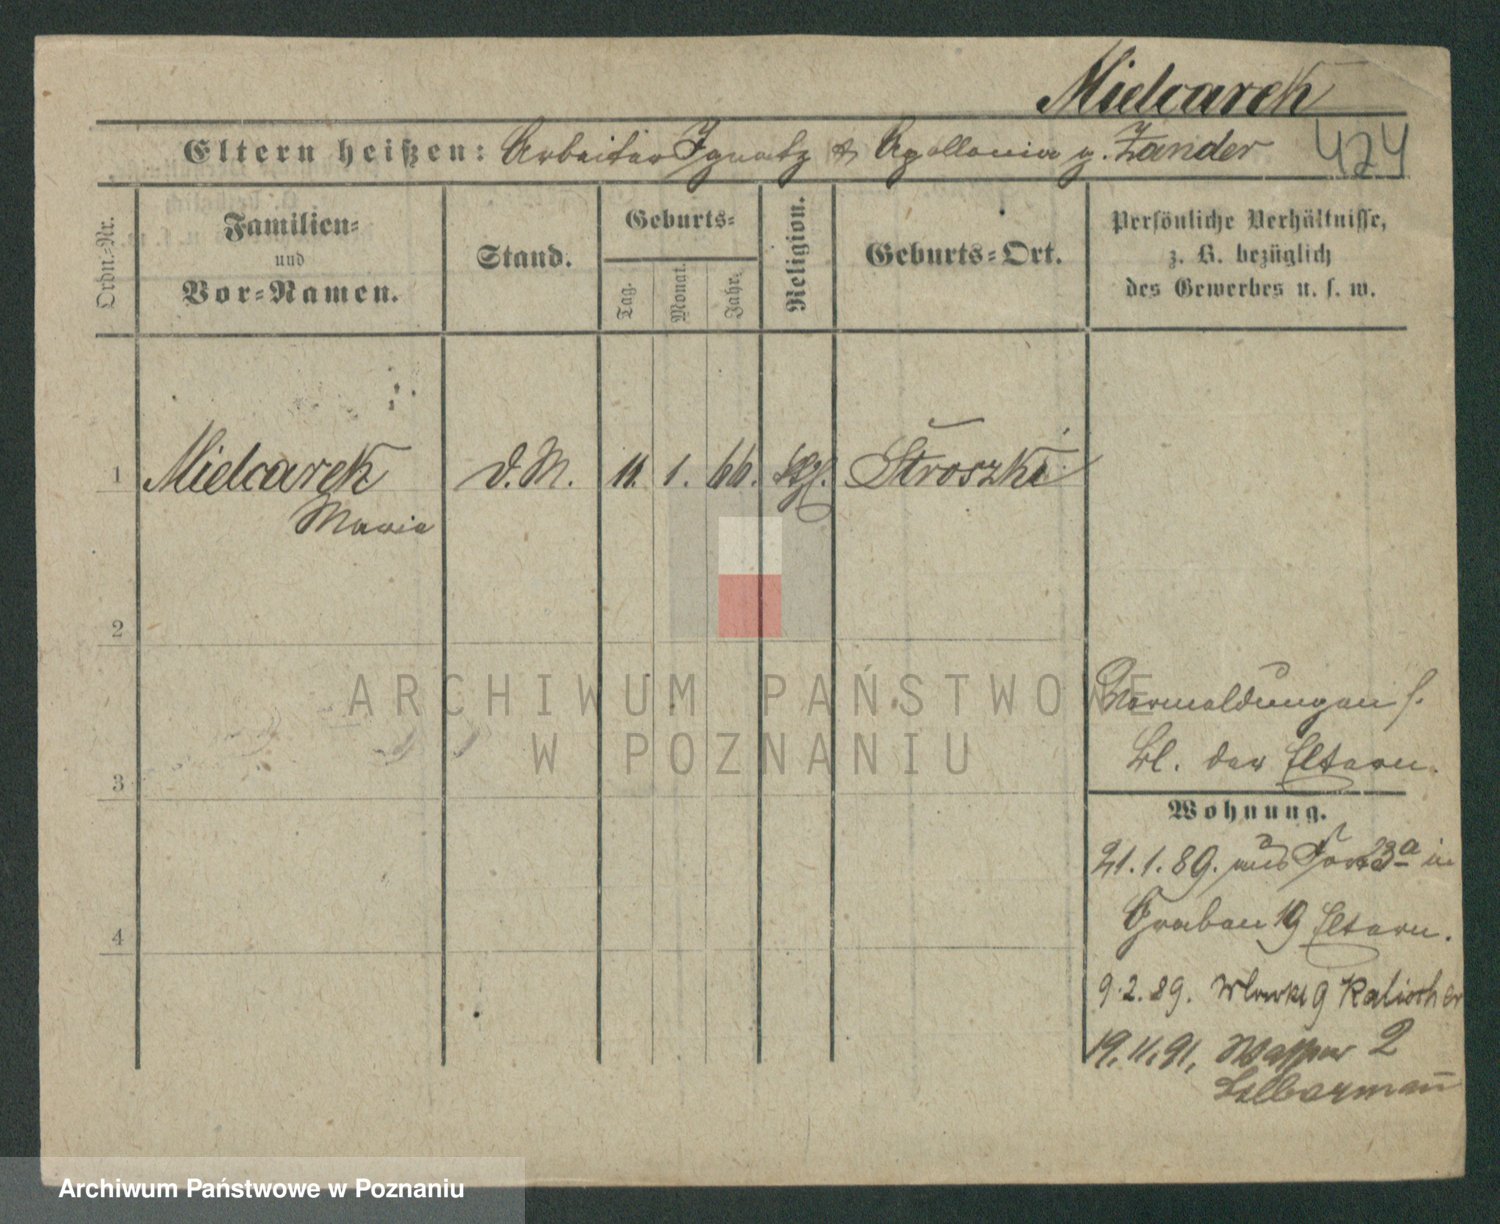 Mielcarek
Eltern heißen: Arbeiter Ignatz & Apollonia g. Zander 424
Ordn.-Nr.
Familien-
und
Vor-Namen.
Stand.
Geburts-
Tag.
Monat.
Jahr.
Religion.
Geburts-Ort.
Persönliche Verhältnisse,
z. B. bezüglich
des Gewerbes u. s. w.
1 Mielcarek d. M. 11. 1. 66. kth. Stroszki
Maria
2
3
4
Vormeldungen s.
Bl. der Eltern.
Wohnung.
21.1.89. aus 23a in
Graben 19 Eltern.
9.2.89. 9
19.11.91. Wasser 2
ARCHIWUM PAŃSTWOWE
W POZNANIU
Archiwum Państwowe w Poznaniu